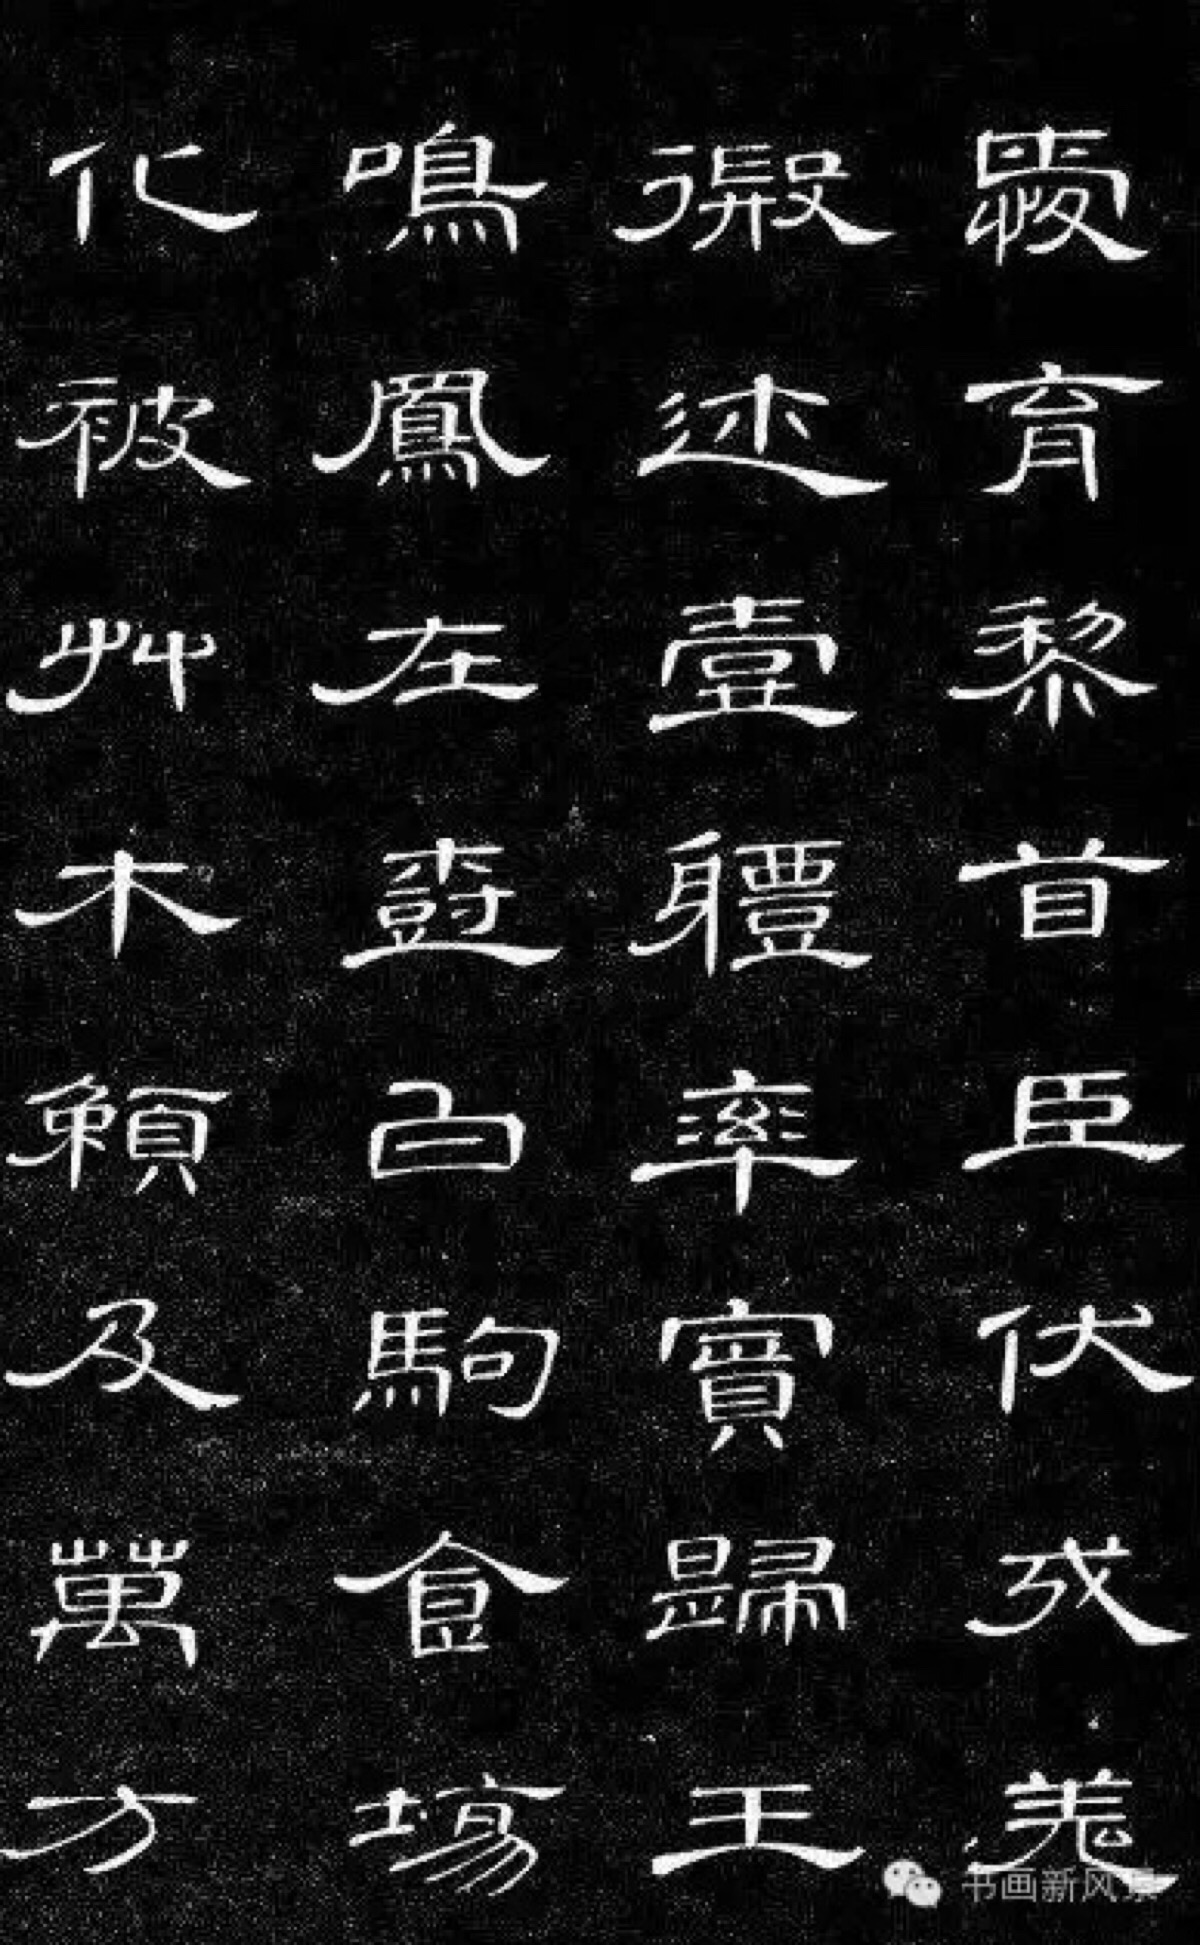 愛育黎首臣伏戎羌
遐迩壹體率賓歸王
鳴鳳在樹白駒食場
化被草木賴及萬方
书画新风景